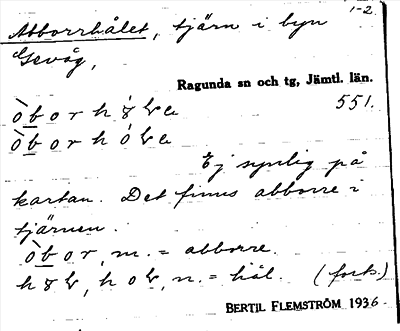 1-2.
Abborrhålet, tjärn i byn
Gevåg,
Ragunda sn och tg, Jämtl. län.
551.
òb o r h
òb o r h
Ej synlig på
kartan. Det finns abborre i
tjärnen.
òb o r, m. = abborre.
n. = hål. (forts.)
BERTIL FLEMSTRÖM 1936